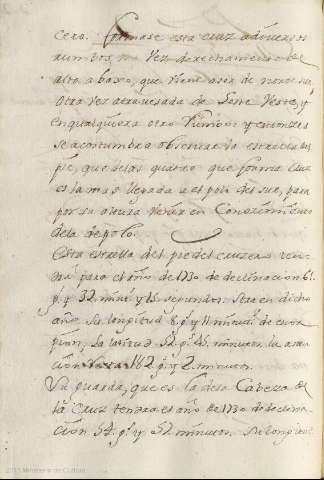 cero. Formase esta cruz a diversos
rumbos, una vez derechamente de
alto a baxo, que viene a ser de norte sur,
otra vez atravesada de Leste Veste, y
en qualquiera otro rumbo, y entonces
se acostumbra observar la estrella del
pie, que de las quatro que forma Cruz
es la mas llegada a el polo del sur, para
por su altura venir en Conosimiento
de la de polo.
Esta estrella del pie del cruzero ten
drá para el año de 1730 de declinacion 61
gº y 32 minº y 15 segundos. Stara en dicho
año Su longitud 8 gº y 11 minutº de escor
pion, Su latitud 52 gº 45 minutos, su asen
cion recta 182 gº y 2 minutos.
Su guarda, que es la de la Cabeza de
la Cruz tendrá el año de 1730 de declina
cion 54 gº y 52 minutos. Su longitud
2013 Ministerio de Cultura